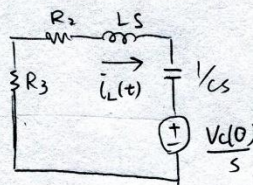 R₂ LS
R₃ i_L(t) 1/cs
+
−
Vc(0)
S